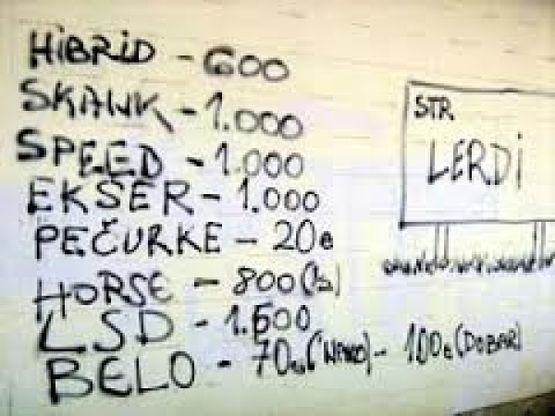 HiBRiD - 600
SKANK - 1.000
SPEED - 1.000
EKSER - 1.000
PEČURKE - 20e
HORSE - 800
LSD - 1.500
BELO - 70e - 100e (DOBAR)
STR
LERDi